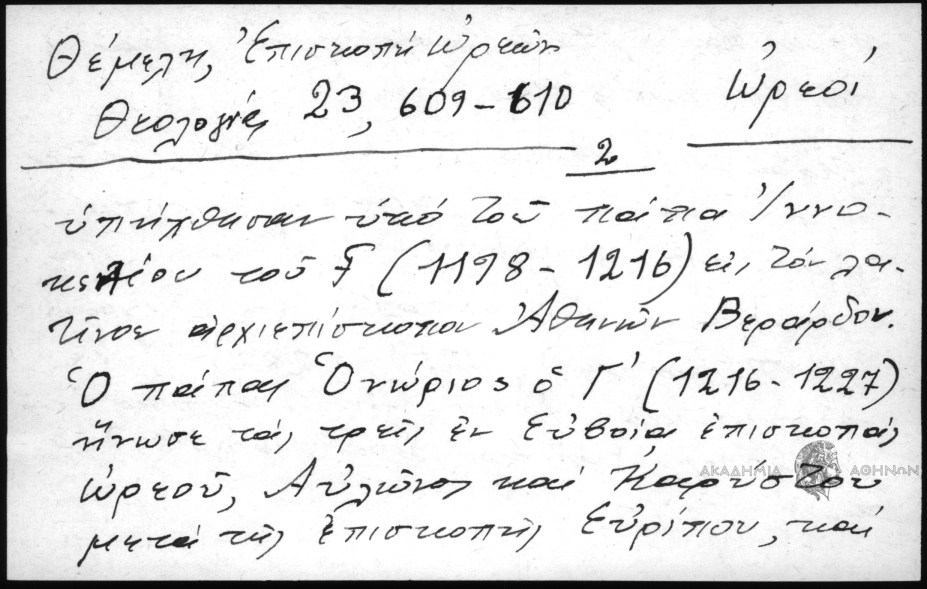 Θέμελη, Ἐπισκοπή Ὠρεῶν
Ὠρεοί
Θεολογία, 23, 609-610
2
ὑπήχθησαν ὑπό τοῦ πάπα Ἰννο-
κεντίου τοῦ Γ (1198-1216) εἰς τόν λα-
τῖνον ἀρχιεπίσκοπον Ἀθηνῶν Βεράρδον.
Ὁ πάπας Ὁνώριος ὁ Γ' (1216-1227)
ἥνωσε τάς τρεῖς ἐν Εὐβοίᾳ ἐπισκοπάς
ΑΚΑΔΗΜΙΑ ΑΘΗΝΩΝ
Ὠρεοῦ, Αὐλῶνος καί Καρύστου
μετά τῆς ἐπισκοπῆς Εὐρίπου, καί